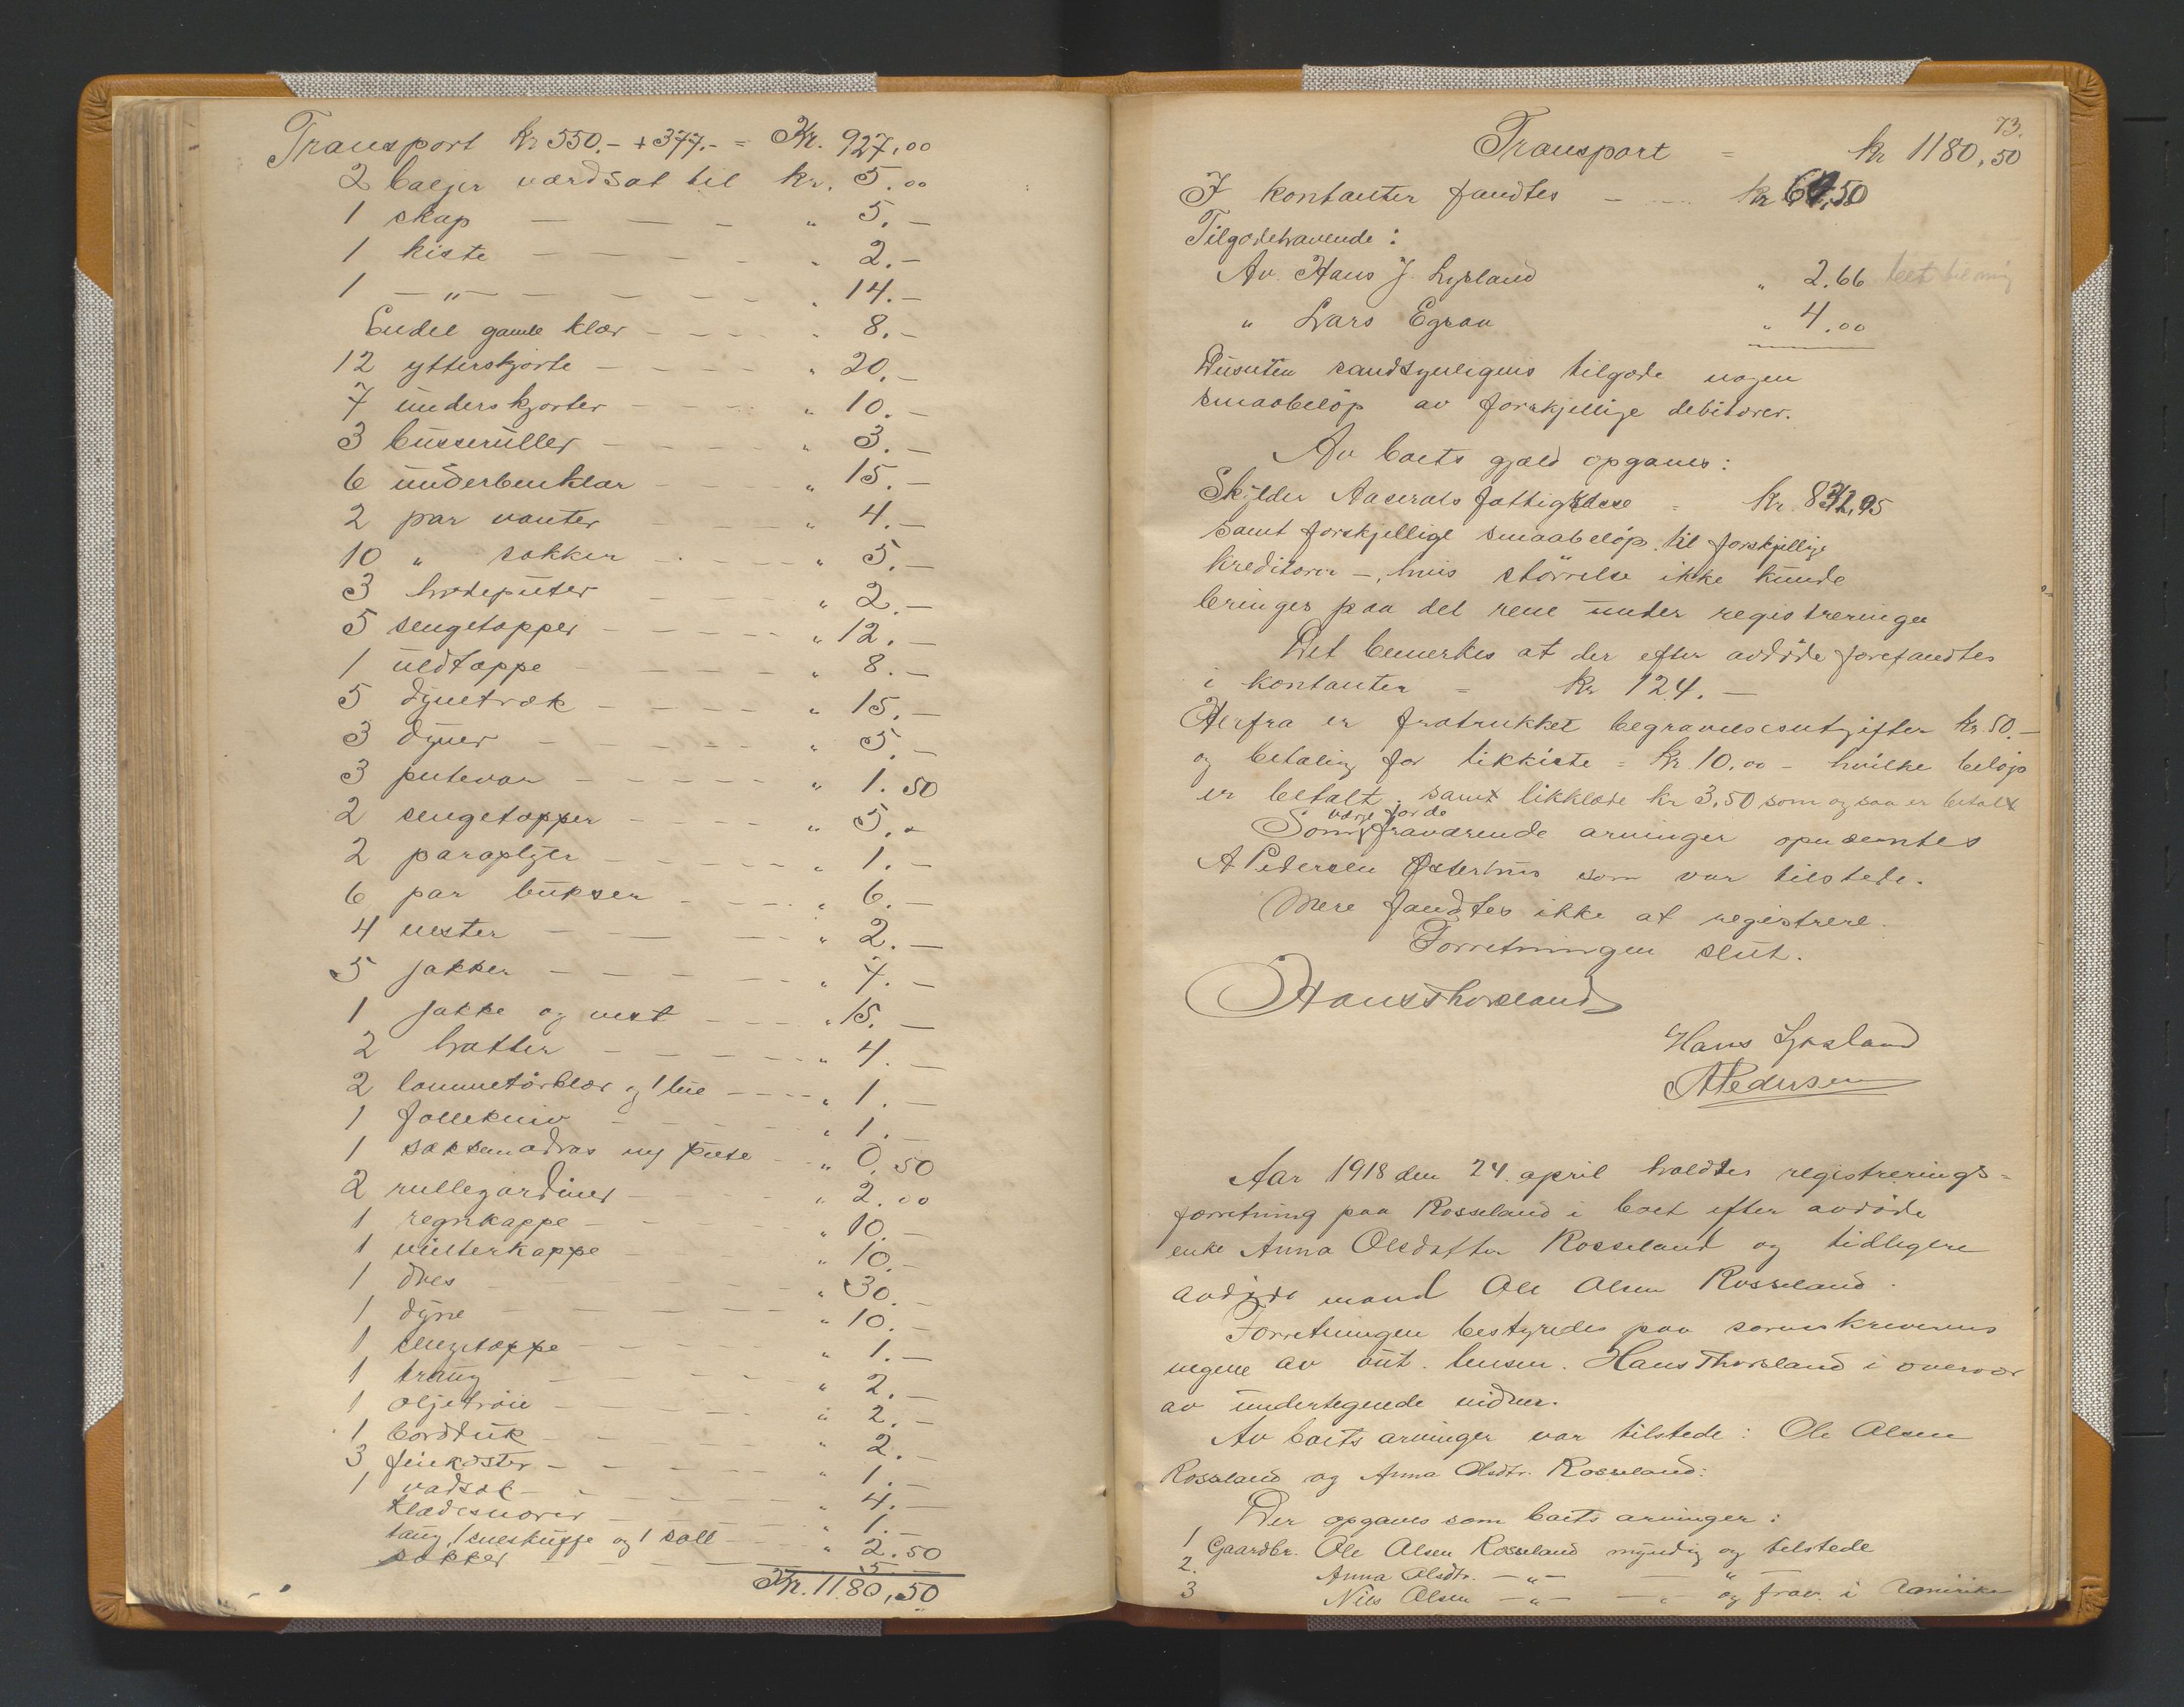 Transport kr 550.- + 377.- = Kr. 927,00
2 baljer værdsat til kr. 5.00
1 skap - - - " 5.-
1 kiste - - - - - " 2.-
1 -"- - - - - " 14.-
Endel gamle klær - - - - " 8.-
12 ytterskjorte - - - - " 20.-
7 underskjorter - - - - " 10.-
3 busseruller - - - - " 3.-
6 underbenklær - - - - " 15.-
2 par vanter - - - - " 4.-
10 " sokker - - - - " 5.-
3 hodeputer - - - - " 2.-
5 sengetæpper - - - - - " 12.-
1 uldtæppe - - - - " 8.-
5 dynetræk - - - - " 15.-
3 dyner - - - - - " 5.-
3 putevar - - - - - " 1.50
2 sengetæpper - - - - - " 5.-
2 paraplyer - - - - - " 1.-
6 par bukser - - - - " 6.-
4 vester - - - - - " 2.-
5 jakker - - - - - " 7.-
1 jakke og vest - - - " 15.-
2 hatter - - - - - " 4.-
2 lommetørklær og 1 lue - - - - " 1.-
1 follekniv - - - - - " 1.-
1 sækkemadras og pute - - " 0,50
2 rullegardiner - - - - " 2.00
1 regnkappe - - - - " 10.-
1 vinterkappe - - - - " 10.-
1 dres - - - - " 30.-
1 dyne - - - - " 10.-
1 sengetæppe - - - - " 1.-
1 traug - - - - " 2.-
1 oljetrøie - - - - " 2.-
1 bordduk - - - - " 2.-
3 feiekoster - - - - " 1.-
1 vadsæk - - - - " 4.-
klædesnorer - - - - " 1.-
taug, 1 sneskuffe og 1 sold - - " 2.50
sokker - - - 5.-
Kr. 1180,50
73.
Transport = kr 1180,50
I kontanter fandtes - - - kr 60,50
Tilgodehavende:
Av Hans J. Ljosland " 2.66 bet til mig
" Lars Egraa " 4.00
Desuten sandsynligvis tilgode nogen
smaabeløp av forskjellige debitorer.
Av boets gjæld opgaves:
Skylder Aaserals fattigkasse = kr. 831,95
samt forskjellige smaabeløp til forskjellige
kreditorer -, hvis størrelse ikke kunde
bringes paa det rene under registreringen
Det bemerkes at der efter avdøde forefandtes
i kontanter = kr 124.-
Herfra er fratrukket begravelsesutgifter kr. 50.-
og betaling for likkiste = kr. 10.00 - hvilke beløp
er betalt, samt likklæde kr 3,50 som ogsaa er betalt
værge for de
Som fraværende arvinger opnævntes
A Pedersen Østerhus som var tilstede.
Mere fandtes ikke at registrere.
Forretningen slut.
Hans Thorsland
Hans Ljosland
A Pedersen
Aar 1918 den 24. april holdtes registrerings=
forretning paa Rosseland i boet efter avdøde
enke Anna Olsdatter Rosseland og tidligere
avdøde mand Ole Olsen Rosseland.
Forretningen bestyredes paa sorenskriverens
vegne av aut. lensm. Hans Thorsland i overvær
av undertegnede vidner.
Av boets arvinger var tilstede: Ole Olsen
Rosseland og Anna Olsdtr. Rosseland:
Der opgaves som boets arvinger:
1 Gaardbr. Ole Olsen Rosseland myndig og tilstede
2. Anna Olsdtr. -"- - " -
3 Nils Olsen -"- - " og frav. i Amerika